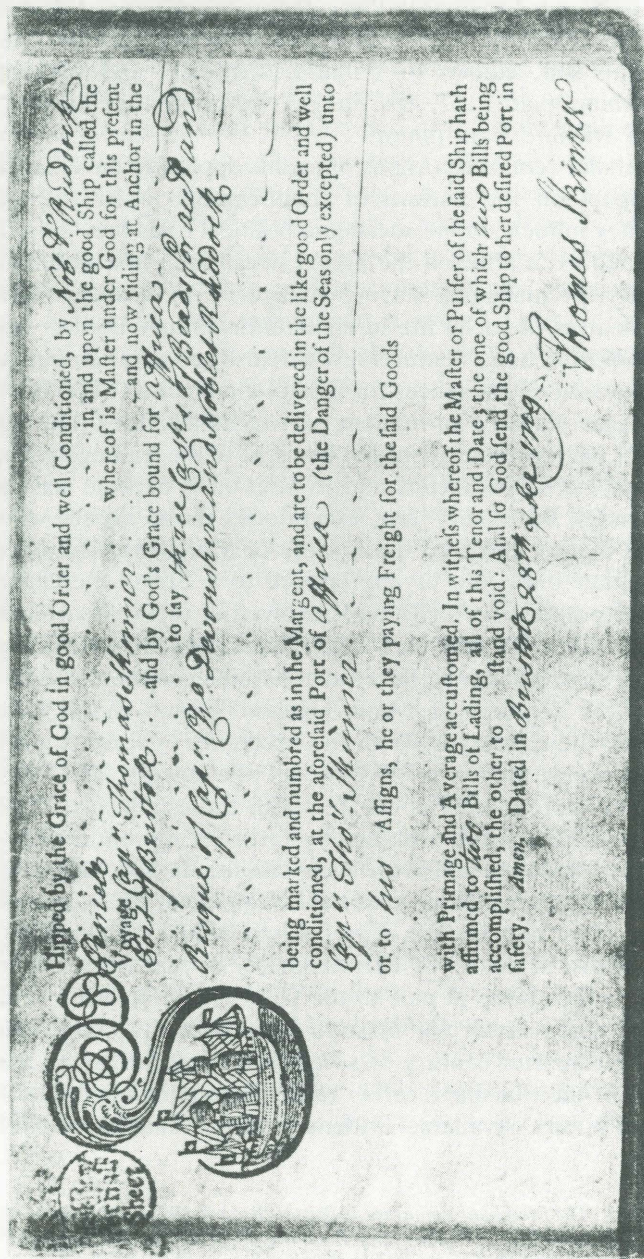 Shipped by the Grace of God in good Order and well Conditioned, by No: & Ruddock
in and upon the good Ship called the
whereof is Maſter under God for this preſent
Voyage Capn Thomas Skinner and now riding at Anchor in the
Port of Bristole and by God's Grace bound for Africa
to ſay three Casks of Beads on
of Cap Devonsheir and Nobles Ruddock
being marked and numbred as in the Margent, and are to be delivered in the like good Order and well
conditioned, at the aforeſaid Port of Africa (the Danger of the Seas only excepted) unto
Cap Thos Skinner
or to his Aſſigns, he or they paying Freight for the ſaid Goods
with Primage and Average accuſtomed. In witneſs whereof the Maſter or Purſer of the ſaid Ship hath
affirmed to Two Bills of Lading, all of this Tenor and Date; the one of which two Bills being
accompliſhed, the other to ſtand void. And ſo God ſend the good Ship to her deſired Port in
ſafety Amen, Dated in Bristol 28th
Thomas Skinner
Sheet